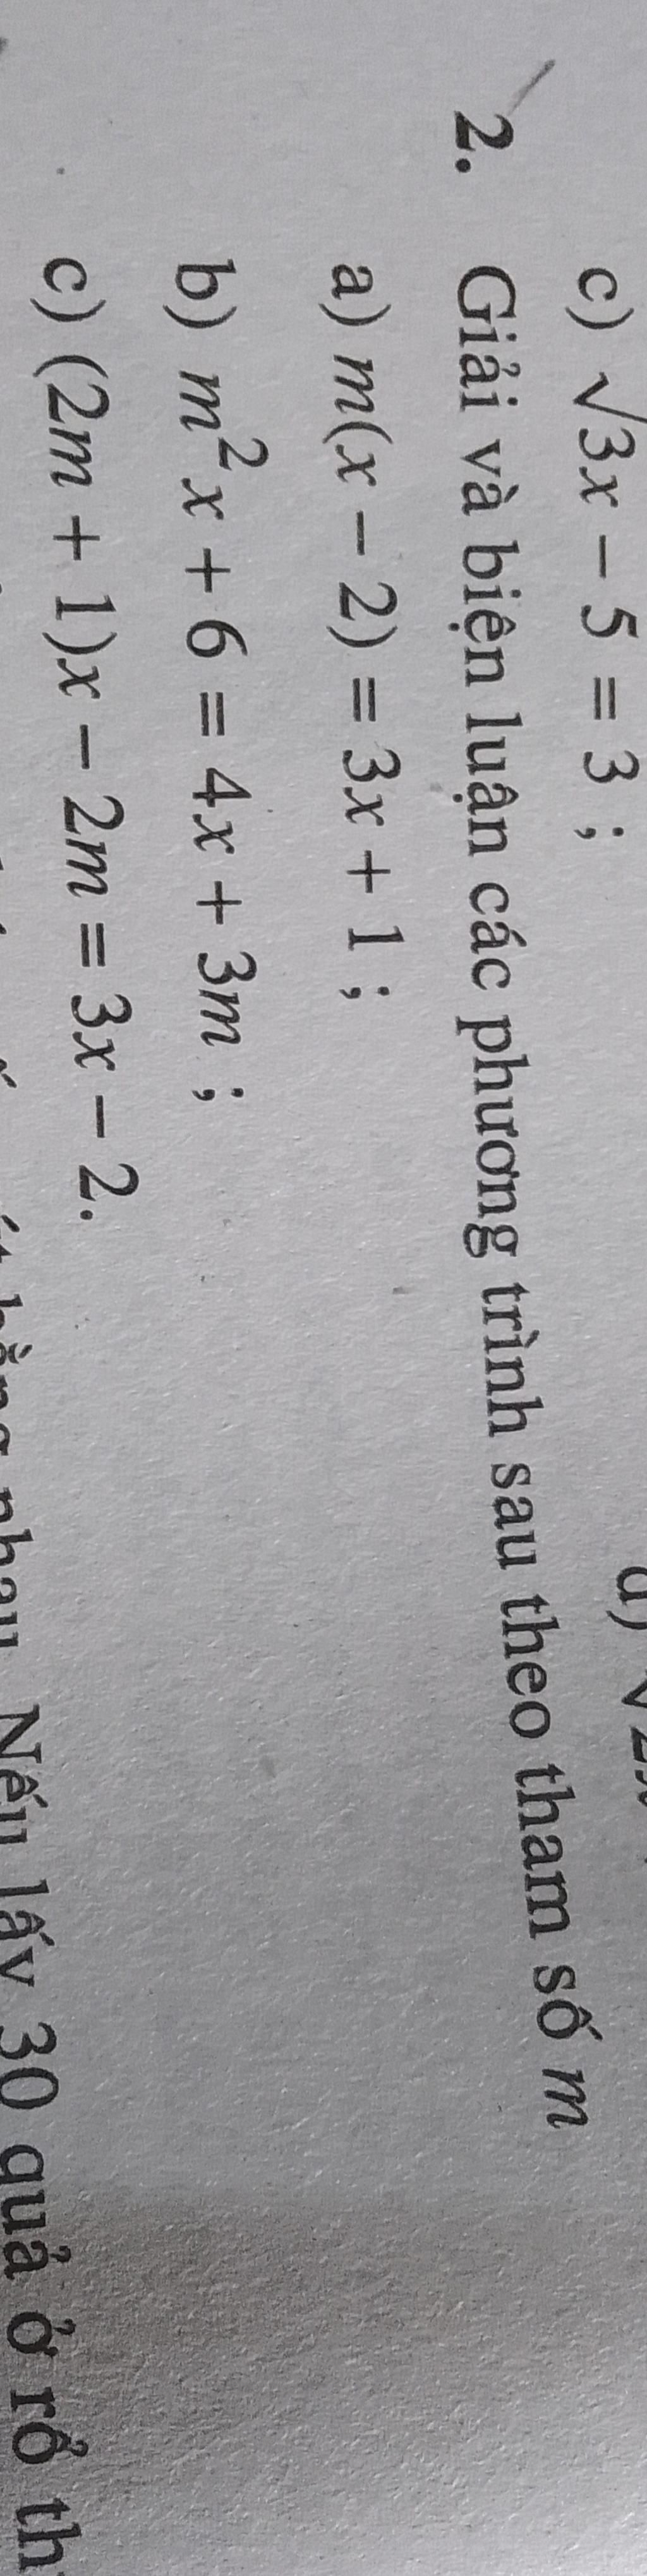 c) √3x − 5 = 3 ;
2. Giải và biện luận các phương trình sau theo tham số m
a) m(x − 2) = 3x + 1 ;
b) m²x + 6 = 4x + 3m ;
c) (2m + 1)x − 2m = 3x − 2.
Nếu lấy 30 quả ở rổ